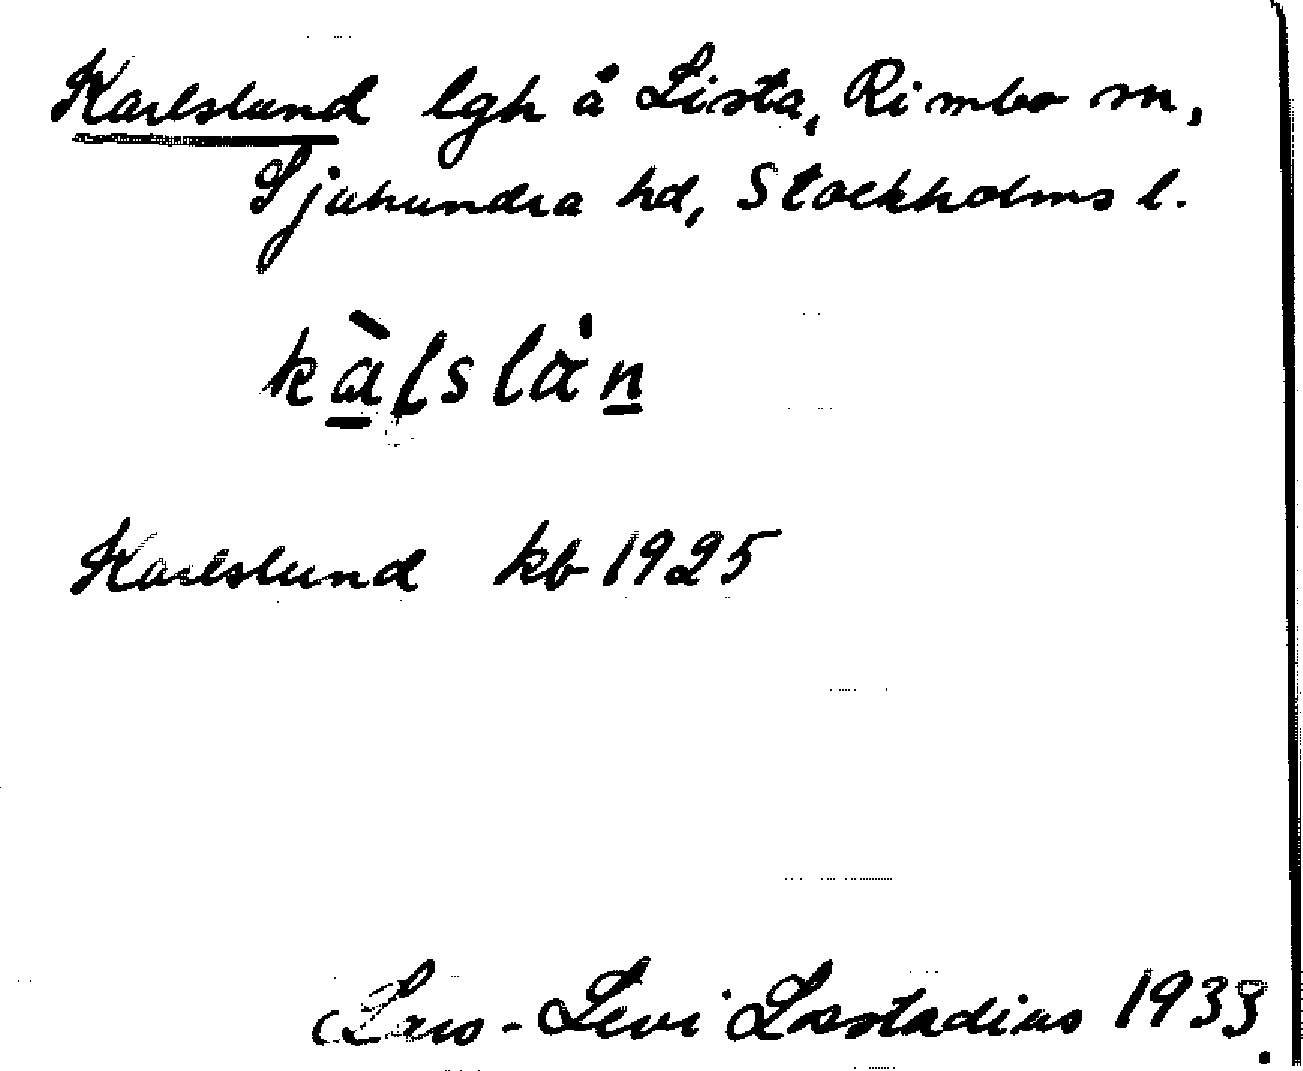 Karlslund lgh å Lista, Rimbo sn,
Sjuhundra hd, Stockholms l.
kàɭslα̇n
Karlslund kb 1925
Lars-Levi Læstadius 1933.